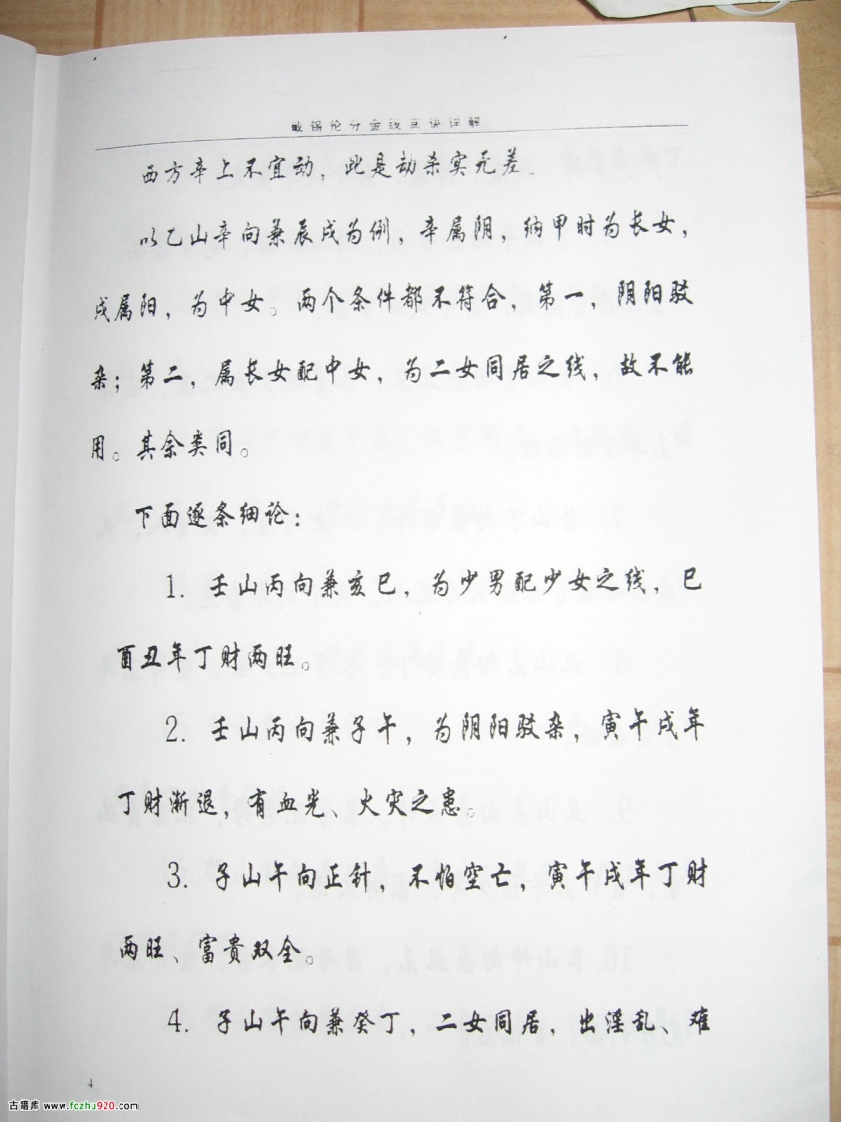 戴锡伦分金线真诀详解
西方辛上不宜动，此是劫杀实无差。
以乙山辛向兼辰戌为例，辛属阴，纳甲时为长女，
戌属阳，为中女。两个条件都不符合，第一，阴阳驳
杂；第二，属长女配中女，为二女同居之线，故不能
用。其余类同。
下面逐条细论：
1. 壬山丙向兼亥巳，为少男配少女之线，巳
酉丑年丁财两旺。
2. 壬山丙向兼子午，为阴阳驳杂，寅午戌年
丁财渐退，有血光、火灾之患。
3. 子山午向正针，不怕空亡，寅午戌年丁财
两旺、富贵双全。
4. 子山午向兼癸丁，二女同居，出淫乱、难
4
古籍库 www.fczhu920.com